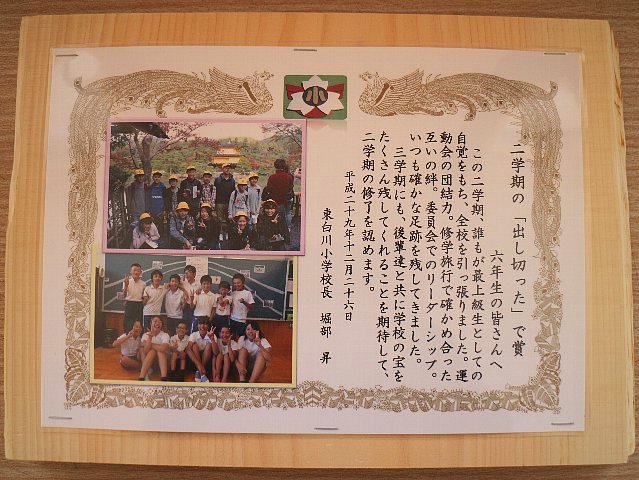 二学期の「出し切った」で賞
六年生の皆さんへ
この二学期、誰もが最上級生としての
自覚をもち、全校を引っ張りました。運
動会の団結力。修学旅行で確かめ合った
互いの絆。委員会でのリーダーシップ。
いつも確かな足跡を残してきました。
三学期にも、後輩達と共に学校の宝を
たくさん残してくれることを期待して、
二学期の修了を認めます。
平成二十九年十二月二十六日
東白川小学校長 堀部 昇
小